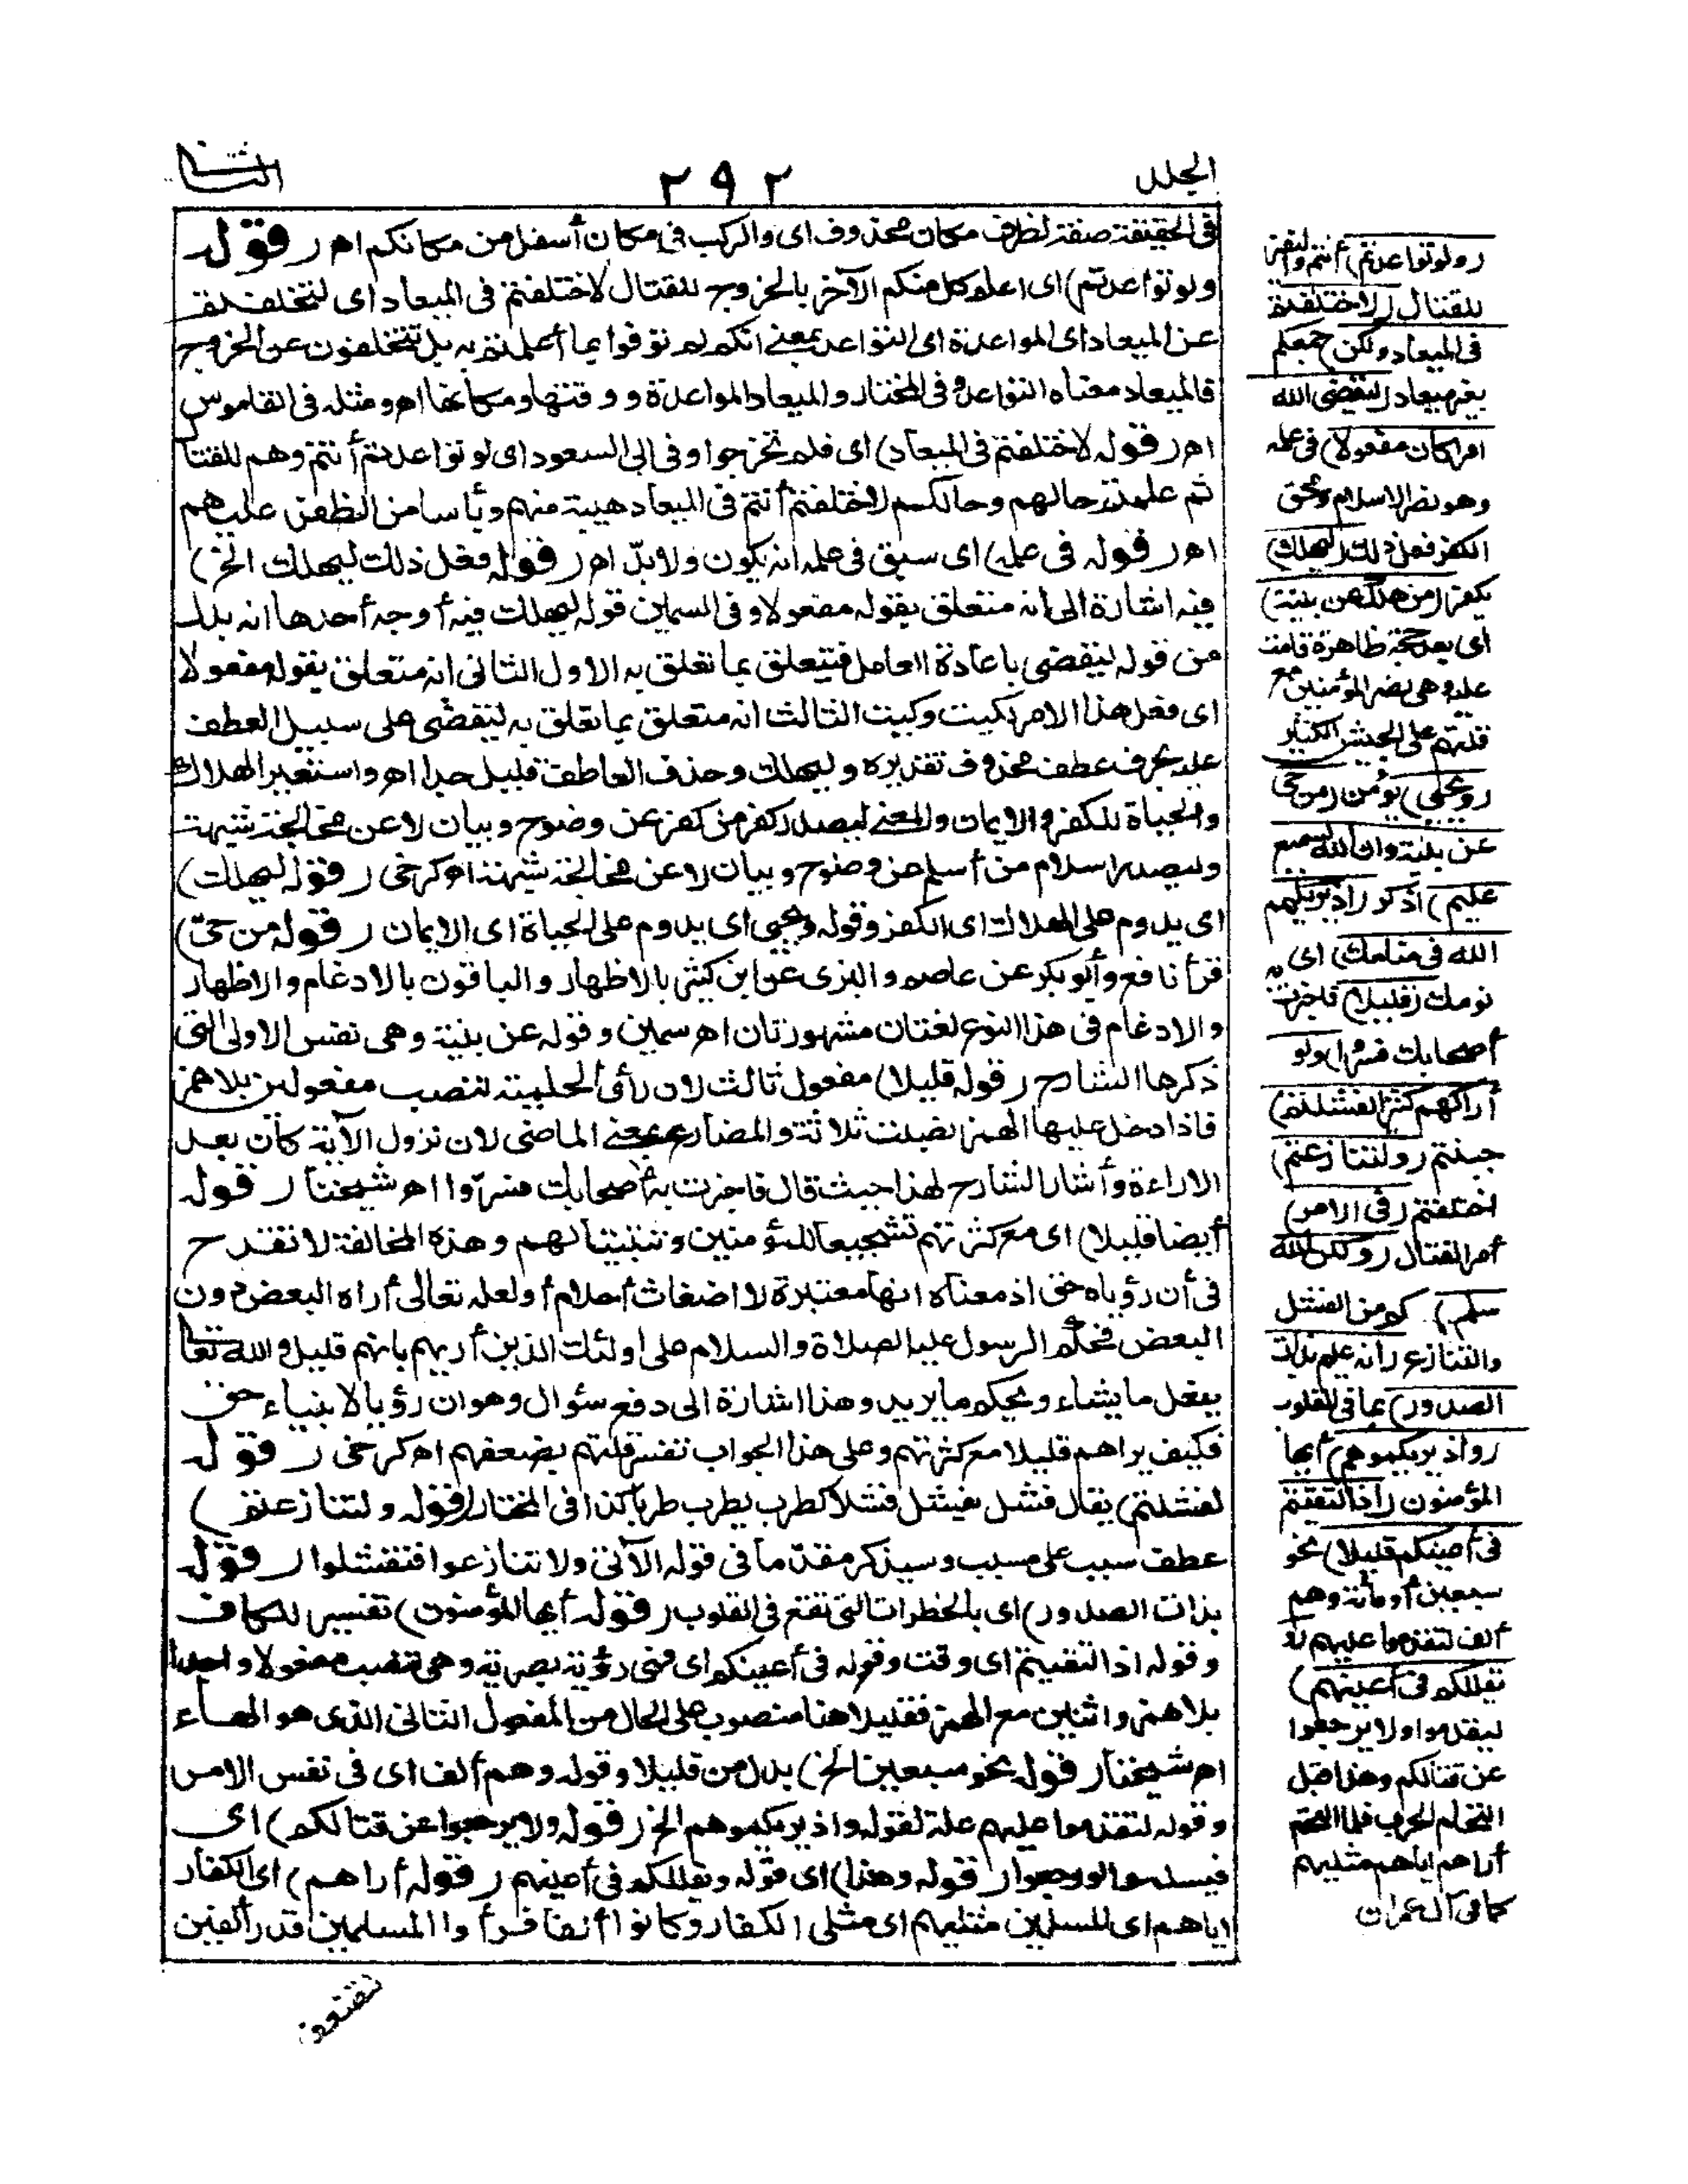 الجلد
٢٩٢
الثانى
فى الحقيقة صفة لظرف مكان محذوف اى والركب فى مكان أسفل من مكانكم اهـ (قوله
ولو تواعدتم) اى اعلم كل منكم الآخر بالخروج للقتال لاختلفتم فى الميعاد اى لتخلفتم
عن الميعاد اى المواعدة اى التواعد بمعنى انكم لم توفوا بما أعلمتم به بل تتخلفون عن الخروج
فالميعاد معناه التواعد وفى المختار والميعاد المواعدة ووقتها ومكانها اهـ ومثله فى القاموس
اهـ (قوله لاختلفتم فى الميعاد) اى فلم تخرجوا وفى ابى السعود اى لو تواعدتم أنتم وهم للقتال
ثم علمتم حالهم وحالكم لاختلفتم أنتم فى الميعاد هيبة منهم ويأسا من الظفر عليهم
اهـ (قوله فى علمه) اى سبق فى علمه انه يكون ولا بدّ اهـ (قوله فعل ذلك ليهلك الخ)
فيه اشارة الى انه متعلق بقوله مفعولا وفى السمين قوله ليهلك فيه أوجه أحدها انه بدل
من قوله ليقضى باعادة العامل فيتعلق بما تعلق به الاول الثانى انه متعلق بقوله مفعولا
اى فعل هذا الامر لكيت وكيت الثالث انه متعلق بما تعلق به ليقضى على سبيل العطف
عليه بحرف عطف محذوف تقديره وليهلك وحذف العاطف قليل جدا اهـ واستعير الهلاك
والحياة للكفر والايمان والمعنى ليصدر كفر من كفر عن وضوح وبيان لا عن مخالجة شبهة
وليصدر اسلام من أسلم عن وضوح وبيان لا عن مخالجة شبهة اهـ كرخى (قوله ليهلك)
اى يدوم على الهلاك اى الكفر وقوله ويحيى اى يدوم على الحياة اى الايمان (قوله من حىّ)
قرأ نافع وأبو بكر عن عاصم والبزى عن ابن كثير بالاظهار والباقون بالادغام والاظهار
والادغام فى هذا النوع لغتان مشهورتان اهـ سمين وقوله عن بينة وهى نفس الاولى التى
ذكرها الشارح (قوله قليلا) مفعول ثالث لان رأى الحلمية تنصب مفعولين بلا همز
فاذا دخل عليها الهمز نصبت ثلاثة والمضارع بمعنى الماضى لان نزول الآية كان بعد
الاراءة وأشار الشارح لهذا حيث قال فاخبرت به أصحابك فسرّوا اهـ شيخنا (قوله
أيضا قليلا) اى مع كثرتهم تشجيعا للمؤمنين وتثبيتا لهم وهذه المخالفة لا تقدح
فى أن رؤياه حق اذ معناه انها معتبرة لا اضغاث أحلام أو لعله تعالى أراه البعض دون
البعض فحكم الرسول عليه الصلاة والسلام على اولئك الذين أريهم بانهم قليل والله تعالى
يفعل ما يشاء ويحكم ما يريد وهذا اشارة الى دفع سؤال وهو ان رؤيا الانبياء حق
فكيف يراهم قليلا مع كثرتهم وعلى هذا الجواب تفسر قلتهم بضعفهم اهـ كرخى (قوله
لفشلتم) يقال فشل يفشل فشلا كطرب يطرب طربا كذا فى المختار (قوله ولتنازعتم)
عطف سبب على مسبب وسيذكر مقدّما فى قوله الآتى ولا تنازعوا فتفشلوا (قوله
بذات الصدور) اى بالخطرات التى تقع فى القلوب (قوله أيها المؤمنون) تفسير للكاف
وقوله اذ التقيتم اى وقت وقوله فى أعينكم اى فهى رؤية بصرية وهى تنصب مفعولا واحدا
بلا همز واثنين مع الهمز فقليلا هنا منصوب على الحال من المفعول الثانى الذى هو الهاء
اهـ شيخنا (قوله نحو سبعين الخ) بدل من قليلا وقوله وهم ألف اى فى نفس الامر
وقوله لتقدموا عليهم علة لقوله واذ يريكموهم الخ (قوله ولا يرجعوا عن قتالكم) اى
(قوله وهذا) اى قوله ويقللكم فى أعينهم (قوله أراهم) اى الكفار
اياهم اى المسلمين مثليهم اى مثلى الكفار وكانوا ألفا فرأوا المسلمين قدر ألفين
(ولو تواعدتم) أنتم والنفير
للقتال (لاختلفتم
فى الميعاد ولكن) جمعكم
بغير ميعاد (ليقضى الله
امرا كان مفعولا) فى علمه
وهو نصر الاسلام ومحق
الكفر فعل ذلك (ليهلك)
يكفر (من هلك عن بينة)
اى بعد حجة ظاهرة قامت
عليه وهى نصر المؤمنين مع
قلتهم على الجيش الكثير
(ويحيى) يؤمن (من حى
عن بينة وان الله لسميع
عليم) اذكر (اذ يريكهم
الله فى منامك) اى
نومك (قليلا) فاخبرت به
أصحابك فسروا (ولو
أراكهم كثيرا لفشلتم)
جبنتم (ولتنازعتم)
اختلفتم (فى الامر)
أمر القتال (ولكن الله
سلم) كم من الفشل
والتنازع (انه عليم بذات
الصدور) بما فى القلوب
(واذ يريكموهم) أيها
المؤمنون (اذ التقيتم
فى أعينكم قليلا) نحو
سبعين أو مائة وهم
ألف لتقدموا عليهم (و
يقللكم فى أعينهم)
ليقدموا ولا يرجعوا
عن قتالكم وهذا قبل
التحام الحرب فلما التحم
أراهم اياهم مثليهم
كما فى آل عمران